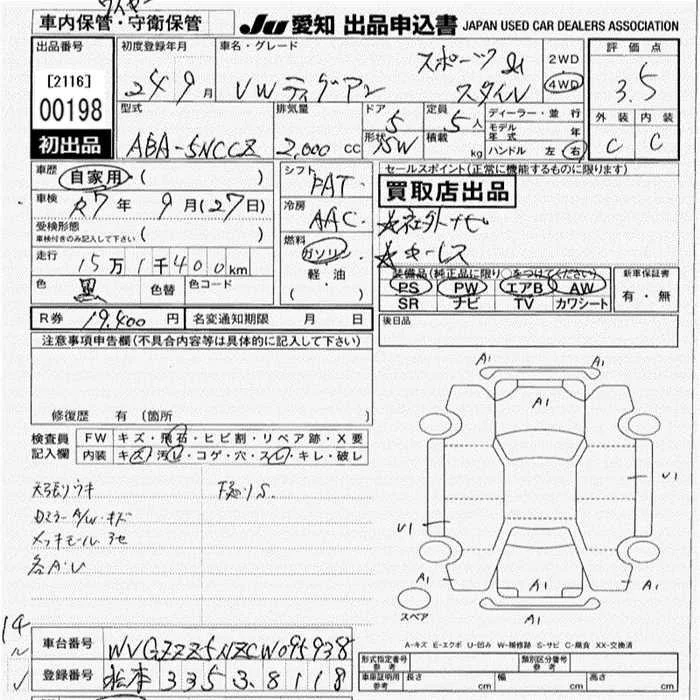 車内保管・守衛保管
JU 愛知 出品申込書 JAPAN USED CAR DEALERS ASSOCIATION
出品番号
[2116]
00198
初出品
初度登録年月
24 9月
車名・グレード
VW ティグアン
スポーツ &
スタイル
2WD
4WD
評価点
3.5
外装 内装
C C
型式
ABA-5NCCZ
排気量
2,000 cc
ドア
5
形状
5W
定員
5人
積載 kg
ディーラー・並行
モデル年式 年
ハンドル 左 右
車歴
自家用 ( )
車検
R7年 9月(27日)
受検形態
車検付きのみ記入して下さい ( )
走行
15万1千400km
色
黒
色替
色コード
シフト
FAT
冷房
AAC
燃料
ガソリン
軽・油
( )
セールスポイント(正常に機能するものに限ります)
買取店出品
☆社外ナビ
装備品(純正品に限り○をつけてください)
PS PW エアB AW
SR ナビ TV カワシート
新車保証書
有・無
R券 19,400円
名変通知期限 月 日
後日品
注意事項申告欄(不具合内容等は具体的に記入して下さい)
修復歴 有(箇所 )
検査員
記入欄
FW キズ・飛石・ヒビ割・リペア跡・X要
内装 キズ・汚レ・コゲ・穴・スレ・キレ・破レ
天張りウキ
下廻りS.
ドアミラーA/W・キズ
メッキモール アセ
各A・U
A1
A1
A1
U1
U1
A1
A1
A1
A1
スペア
A-キズ E-エクボ U-凹み W-補修跡 S-サビ C-腐食 XX-交換済
車台番号 WVGZZZ5NZCW095938
登録番号 松本 335 3 8118
形式指定番号
参考
類別区分番号
参考
車庫証明用
参考
長さ cm
幅 cm
高さ cm